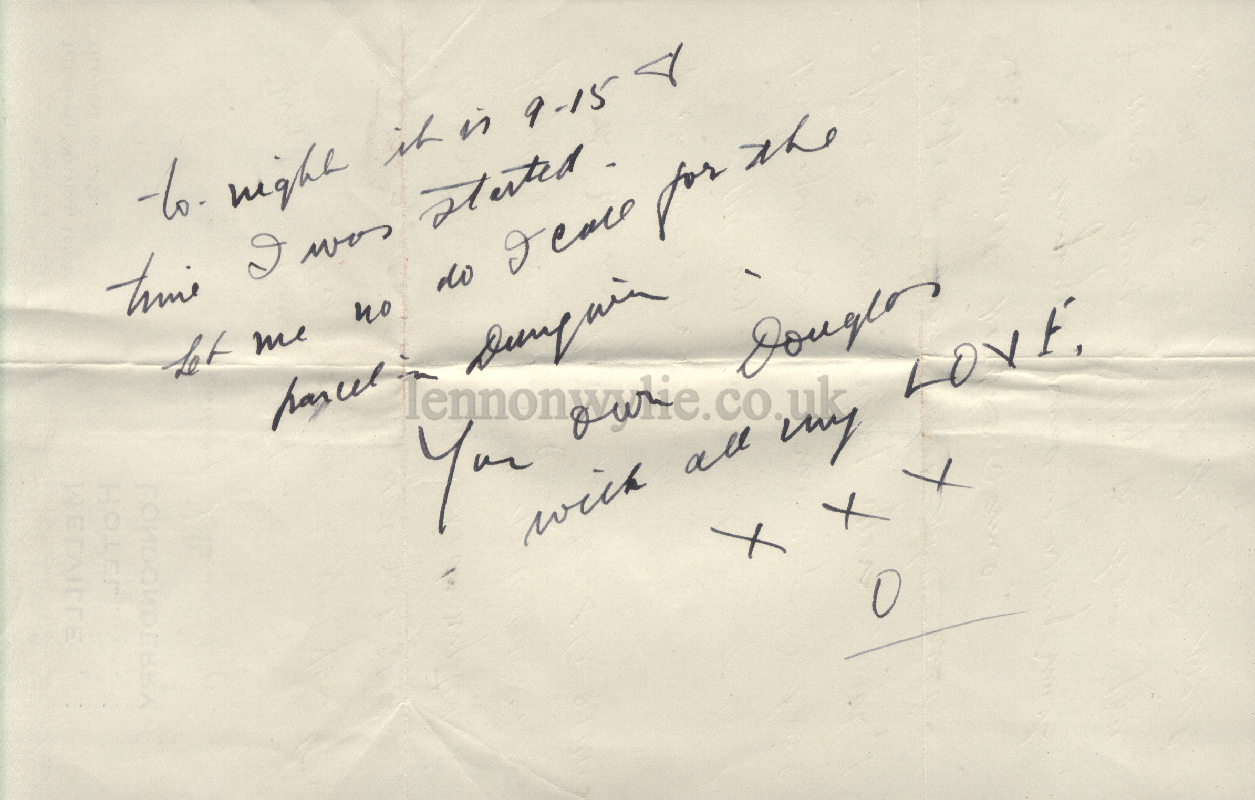 to-night it is 9-15 &
time I was started.
Let me no do I call for the
parcel in Dungiven.
Your own Douglas
with all my LOVE.
x x x
O
lennonwylie.co.uk
LONDONDERRY
HOTEL